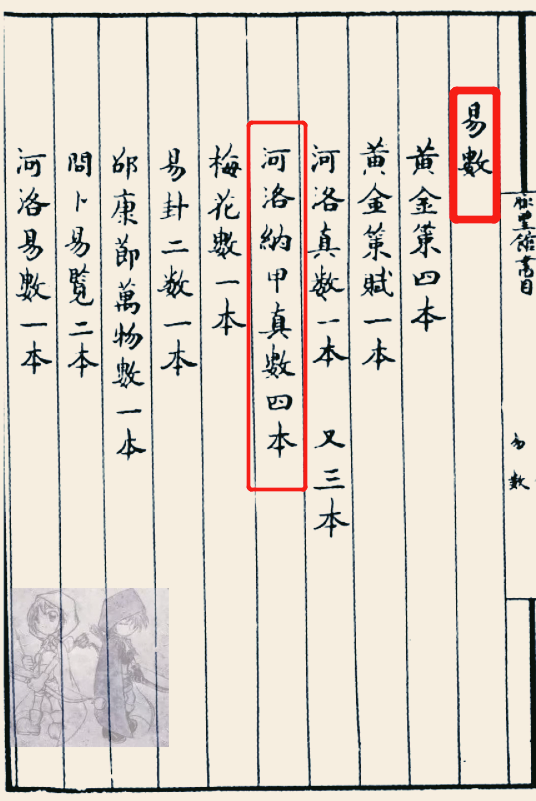 脉望館書目
易數
易數
黄金策四本
黄金策賦一本
河洛真数一本 又三本
河洛納甲真數四本
梅花數一本
易卦二数一本
邵康節萬物數一本
問卜易覽二本
河洛易數一本